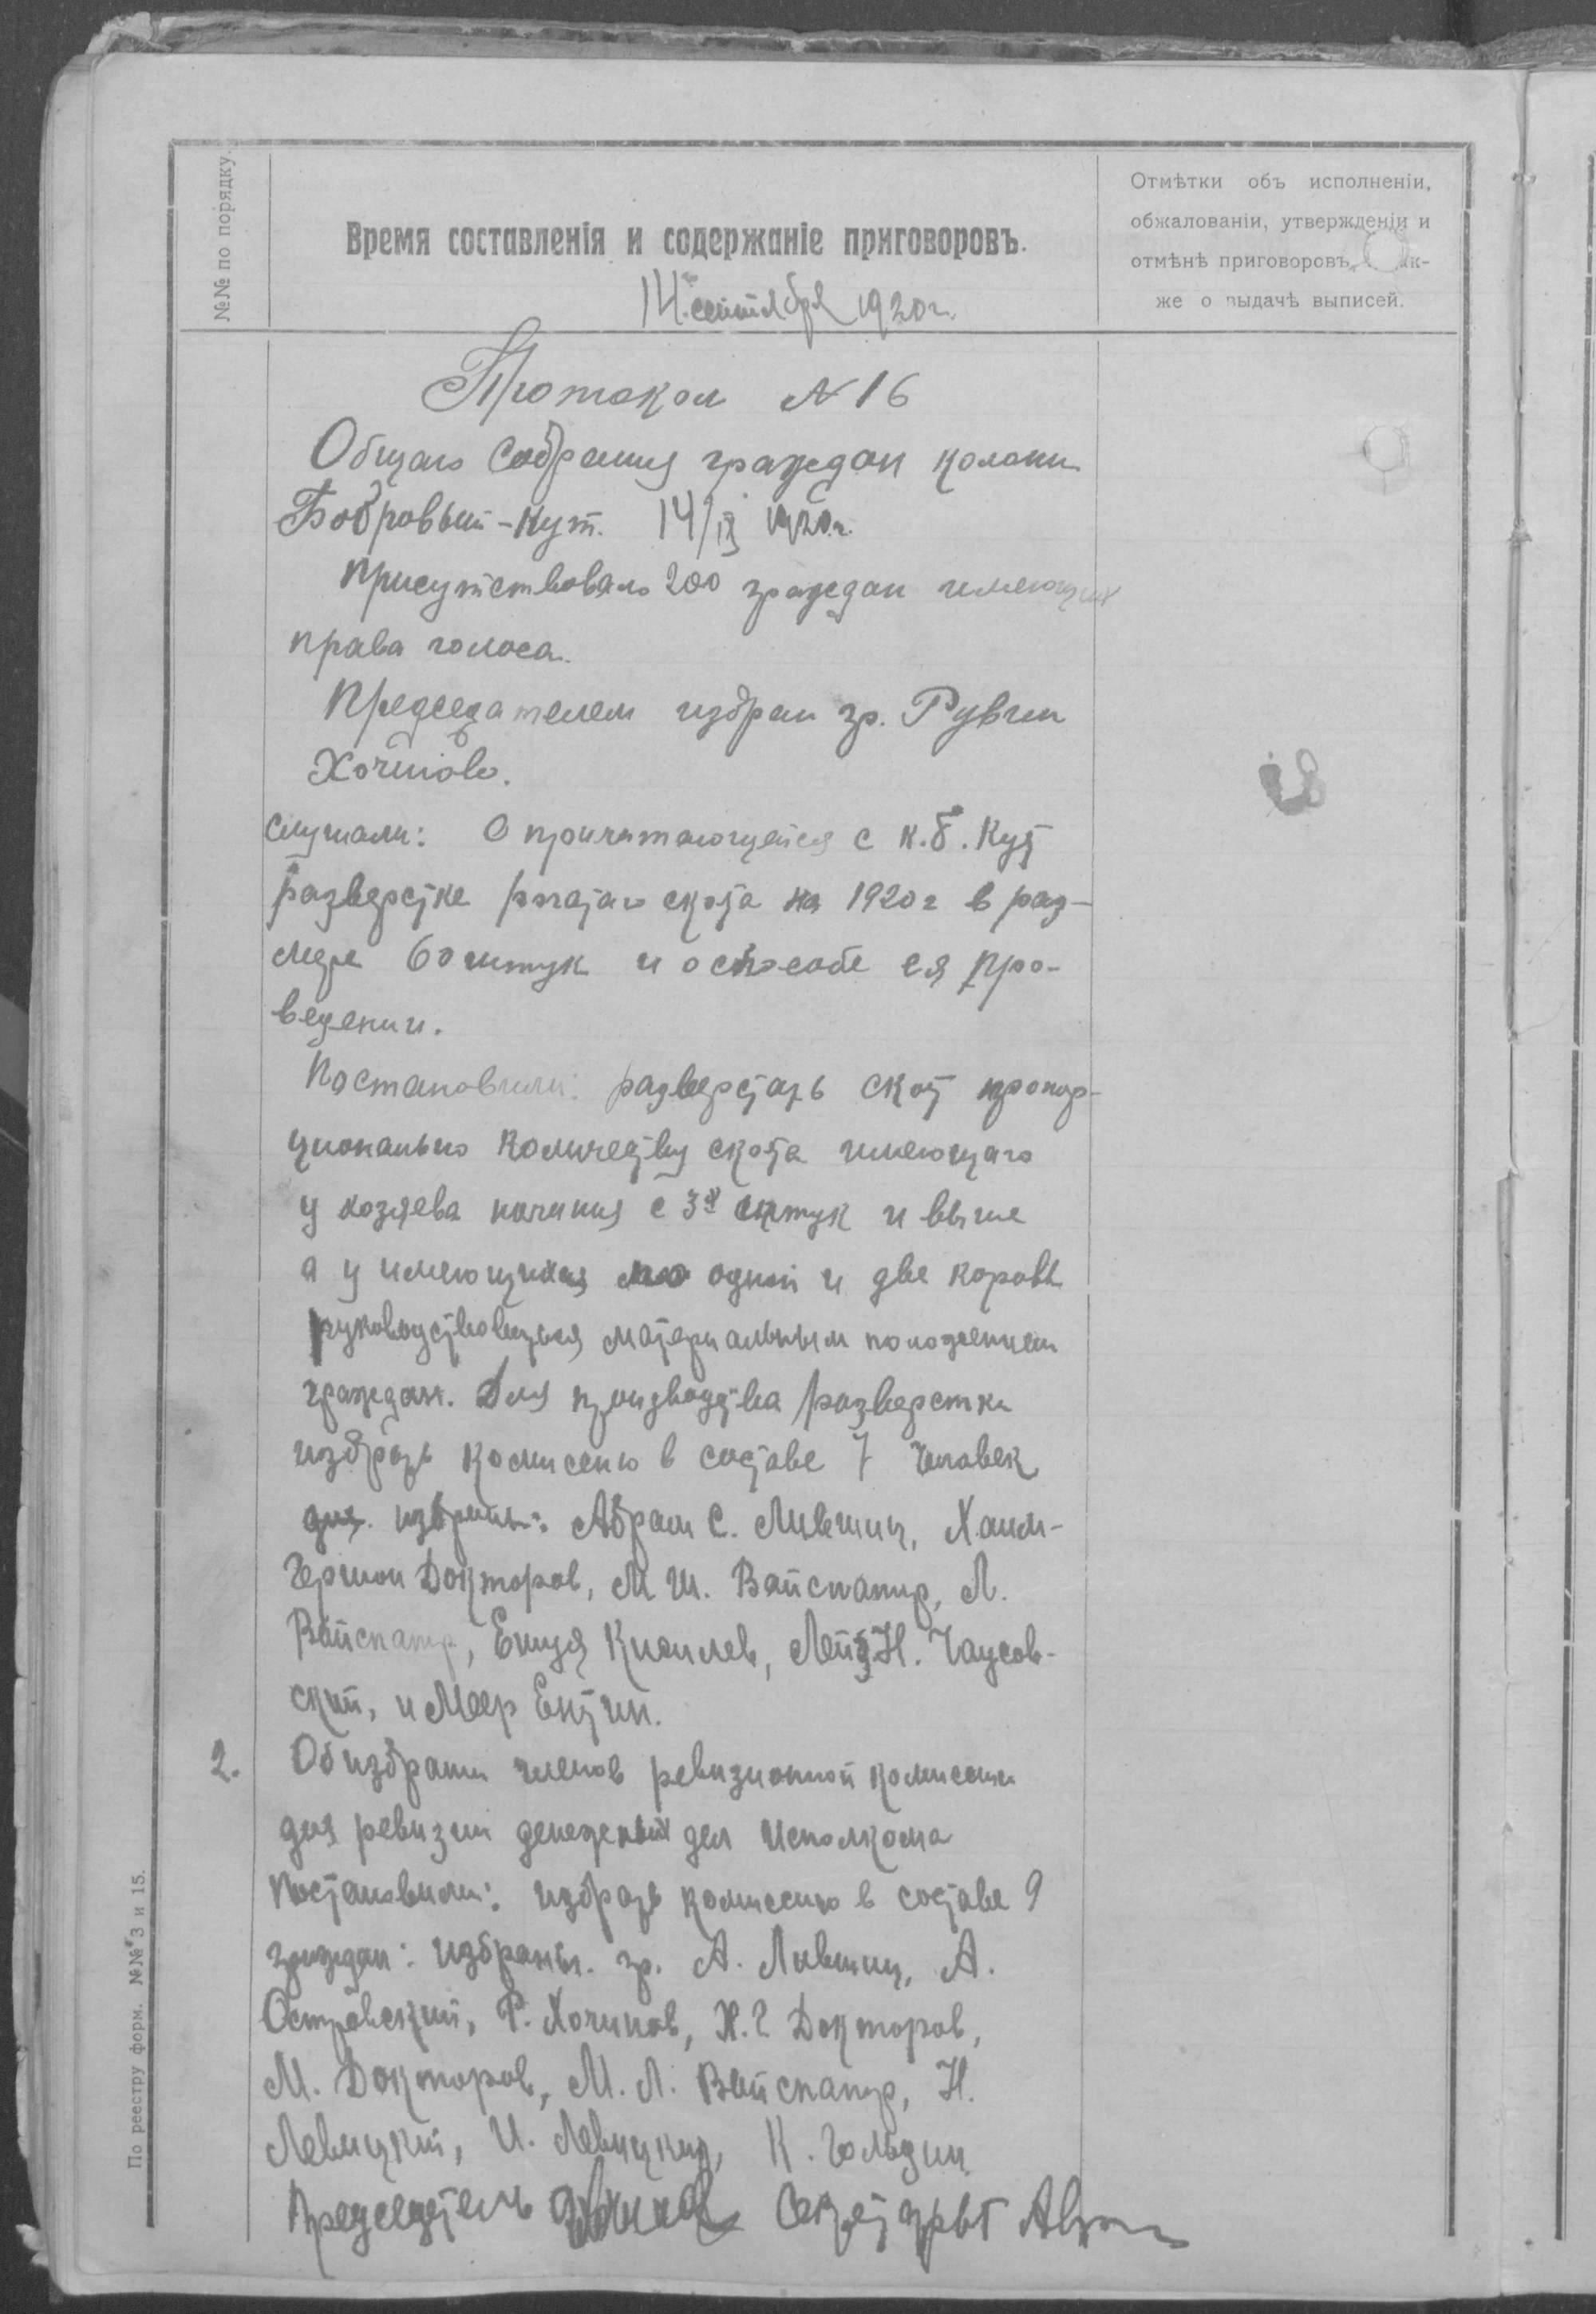 №№ по порядку.
Время составленія и содержаніе приговоровъ.
Отмѣтки объ исполненіи,
обжалованіи, утвержденіи и
отмѣнѣ приговоровъ, ак-
же о выдачѣ выписей.
14. сентября 1920 г.
Протокол N 16
Общаго Собрания граждан колони
Бобровый-Кут. 14/IX 1920 г.
Присутствовало 200 граждан имеющих
права голоса.
Председателем избран гр. Рувин
Хочинов.
Слушали: О причитающейся с к. Б. Кут
разверстке рогатаго скота на 1920 г в раз-
мере 60 штук и о способе ея про-
ведении.
Постановили: разверстать скот пропор-
ционально количеству скота имеющаго
у хозяева начиная с 3х штук и выше
а у имеющихся по одной и две коровы
руководствоваться материальным положением
граждан. Для производства разверстки
избрать комисею в составе 7 человек
избраны: Абрам С. Лившиц, Хаим-
Гершон Докторов, М Ш. Вайспапир, Л.
Вайспапир, Ешуя Киселев, Лейз. Н. Чаусов-
ский, и Меер Ентин.
2. Об избрании членов ревизионной комиссии
для ревизии денежных дел Исполкома
Постановили: избрать комиссию в составе 9
граждан: избраны. гр. А. Лившиц, А.
Островский, Р. Хочинов, Х. Г. Докторов,
М. Докторов, М. Л. Вайспапир, Н.
Левицкий, И. Левицкий, К. Гольдин
Председатель Секретарь
По реестру форм. №№ 3 и 15.